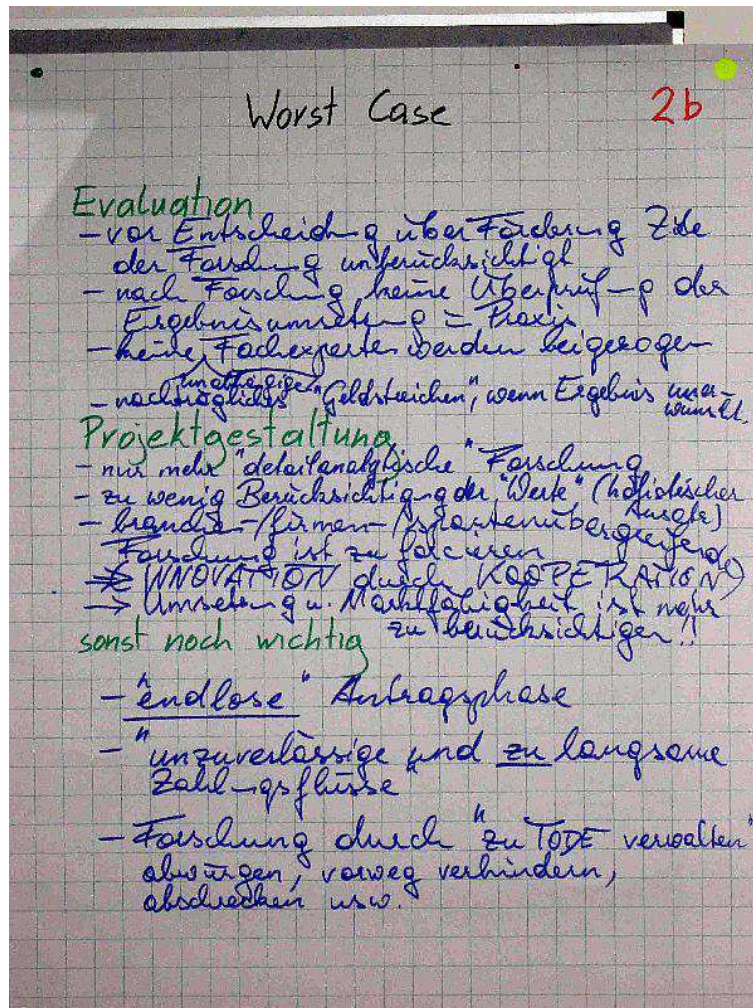 Worst Case 2b
Evaluation
- vor Entscheid-g über Förder-g Ziele
der Forsch-g unberücksichtigt
- nach Forschung keine Überprüf-g der
Ergebnisumsetz-g = Praxis
- keine Fachexperten werden beigezogen
unabhängige
- nachträgliches "Geldstreichen", wenn Ergebnis uner-
wünscht.
Projektgestaltung
- nur mehr "detailanalytische" Forschung
- zu wenig Berücksichtigung der "Werte" (holistischer
Ansatz)
- branchen-/firmen-/spartenübergreifende
Forschung ist zu forcieren
→ INNOVATION durch KOOPERATION)
→ Umsetzung u. Marktfähigkeit ist mehr
zu berücksichtigen!!
sonst noch wichtig
- "endlose" Antragsphase
- "unzuverlässige und zu langsame
Zahl-gsflüsse"
- Forschung durch "zu TODE verwalten"
abwürgen, vorweg verhindern,
abschrecken usw.